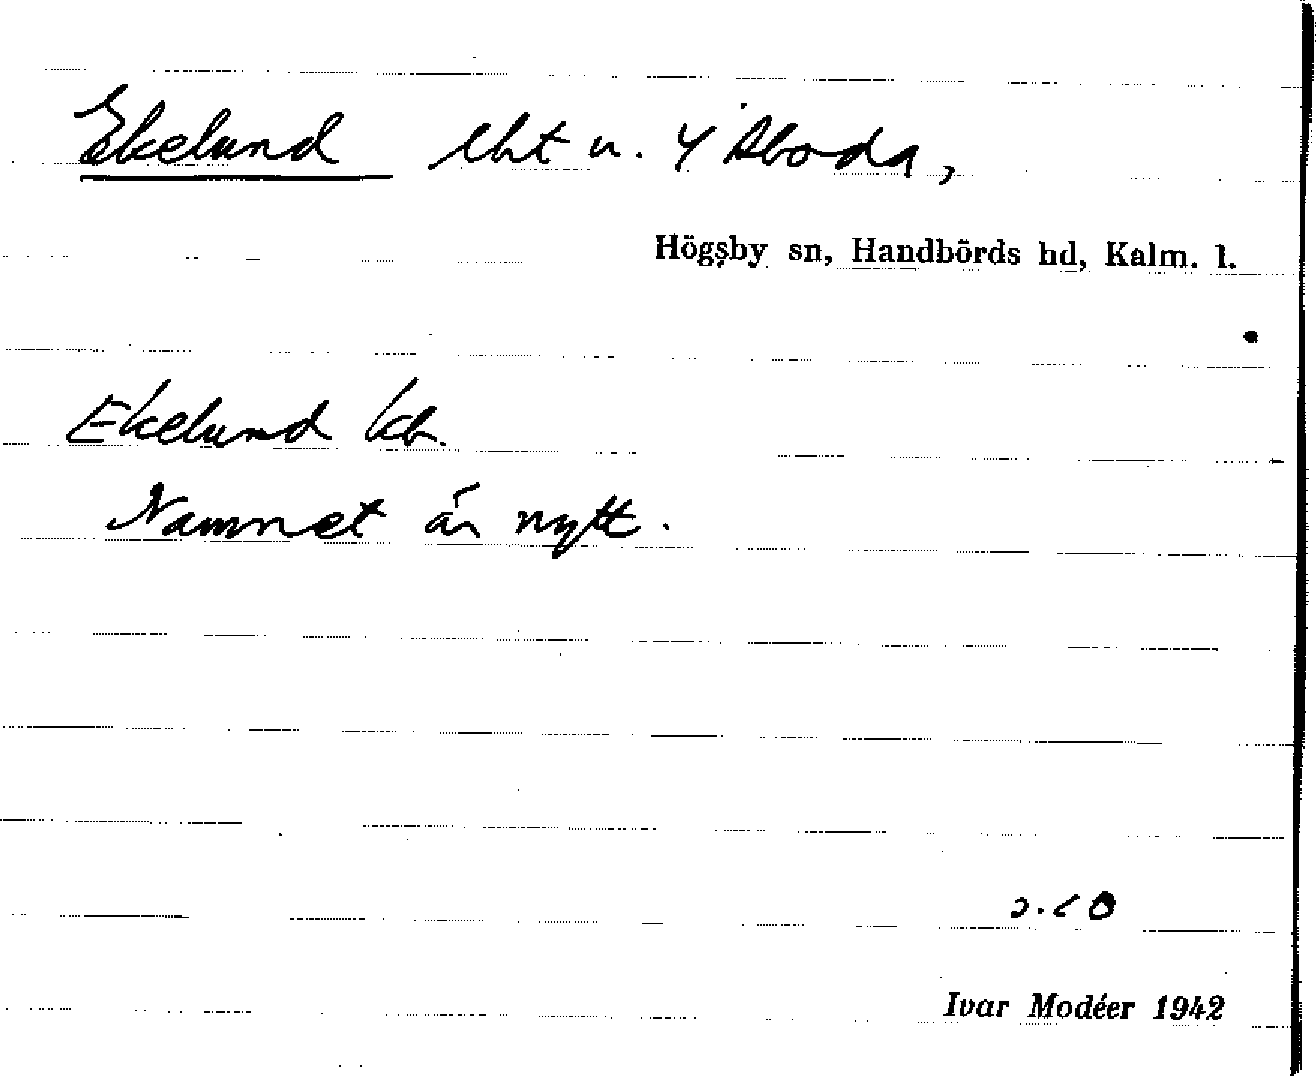 Ekelund lht u. Y Aboda,
Högsby sn, Handbörds hd, Kalm. l.
Ekelund kb.
Namnet är nytt.
Ivar Modéer 1942